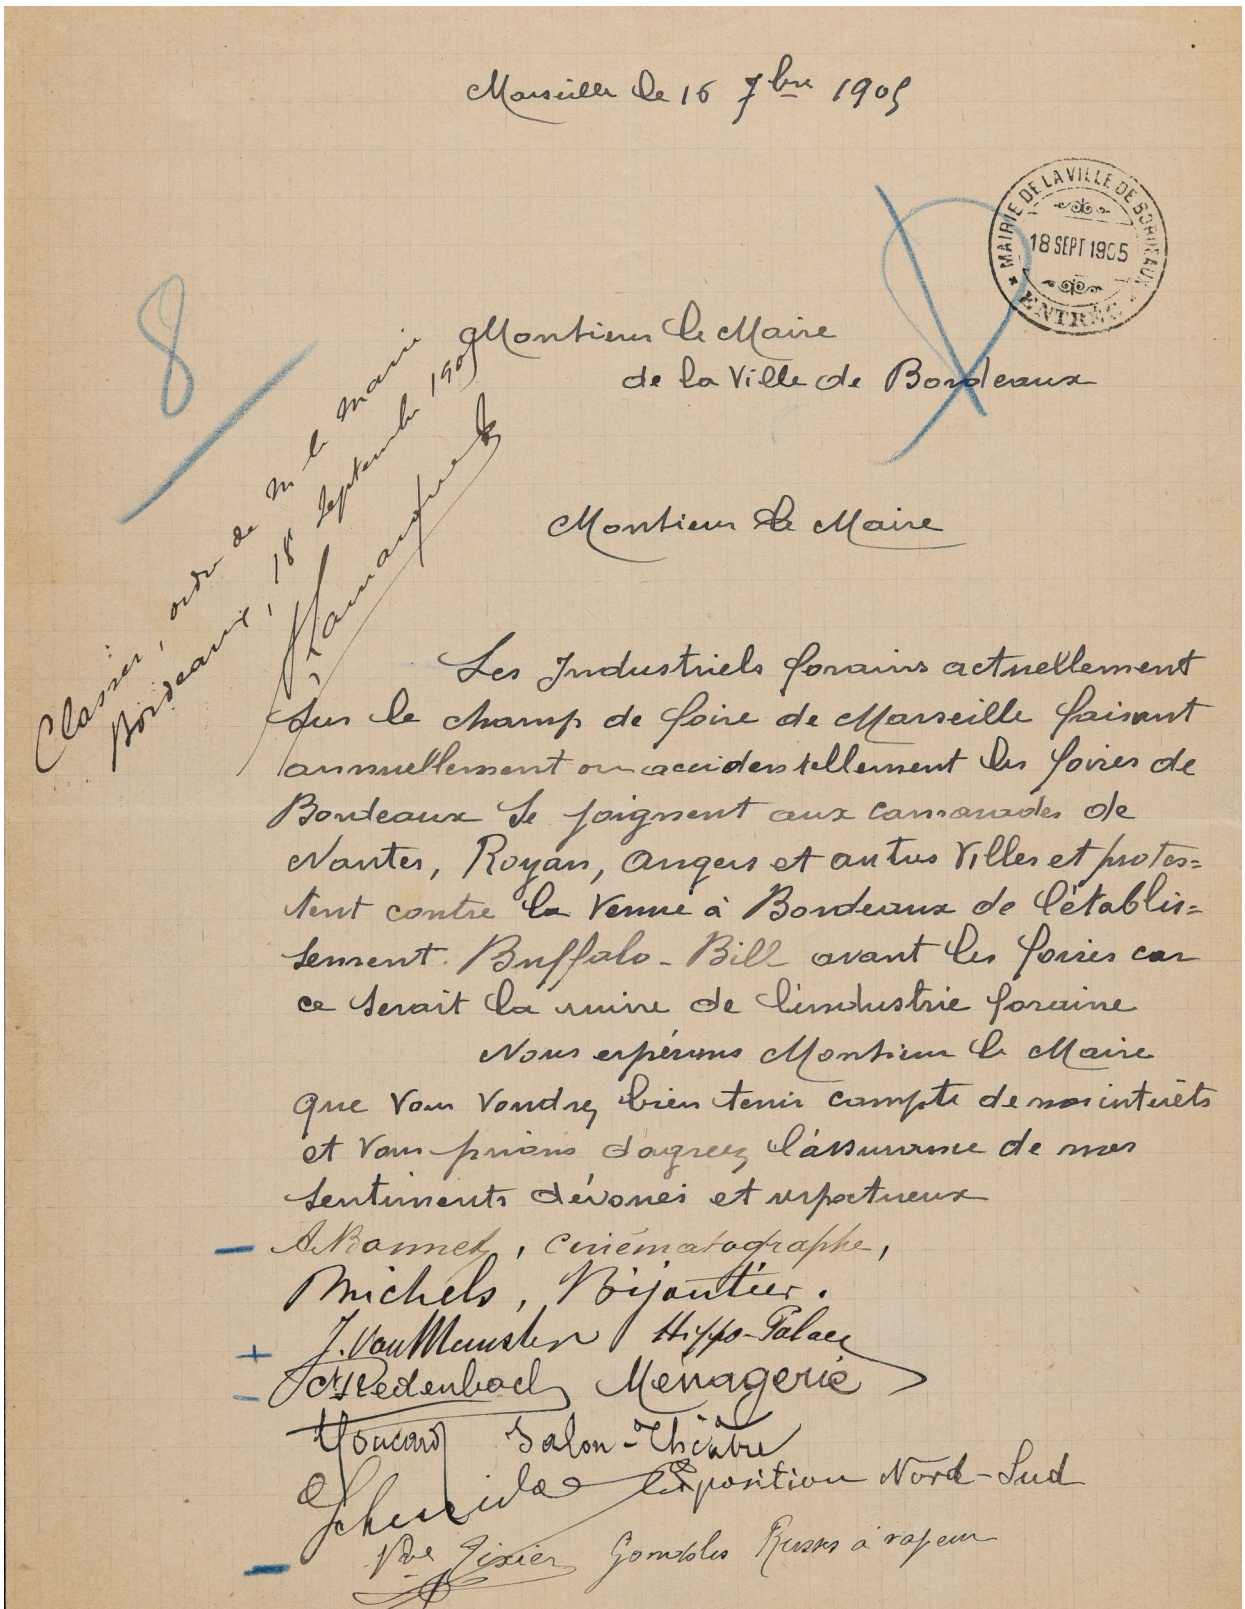 Marseille le 16 7bre 1905
MAIRIE DE LA VILLE DE BORDEAUX
18 SEPT 1905
ENTRÉE
8
Monsieur le Maire
de la Ville de Bordeaux
Classer, ordre de M le Maire
Bordeaux, 18 Septembre 1905
Monsieur le Maire
Les Industriels forains actuellement
sur le champ de foire de Marseille faisant
annuellement ou accidentellement les foires de
Bordeaux se joignent aux camarades de
Nantes, Royan, Angers et autres Villes et protes=
tent contre la Venue à Bordeaux de l'établis=
sement Buffalo-Bill avant les foires car
ce serait la ruine de l'industrie foraine
Nous espérons Monsieur le Maire
que vous voudrez bien tenir compte de nos intérêts
et vous prions d'agreez l'assurance de nos
sentiments dévoués et respectueux
A Bonnet, Cinématographe,
Michels, Bijoutier.
J. Van Munster Hippo-Palace
Redenbach Ménagerie
Salon-Théâtre
Schneider Exposition Nord-Sud
Vve Tixier Gondoles Russes à vapeur